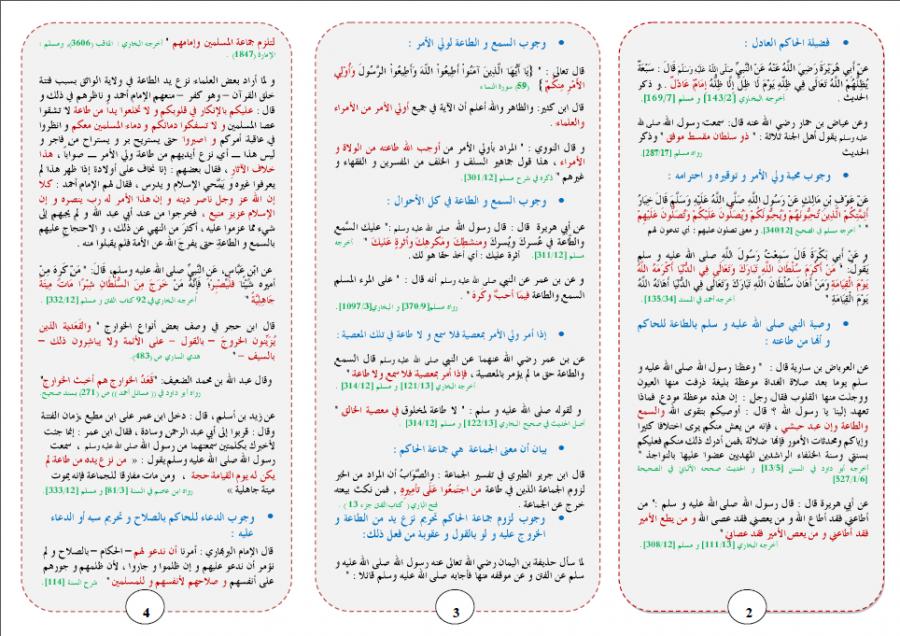 • فضيلة الحاكم العادل :
عَنْ أَبِي هُرَيْرَةَ رَضِيَ اللَّهُ عَنْهُ عَنِ النَّبِيِّ صَلَّى اللَّهُ عَلَيْهِ وَسَلَّمَ قَالَ : سَبْعَةٌ
يُظِلُّهُمُ اللَّهُ تَعَالَى فِي ظِلِّهِ يَوْمَ لَا ظِلَّ إِلَّا ظِلُّهُ إِمَامٌ عَادِلٌ .. و ذكر
الحديث . أخرجه البخاري [143/2] و مسلم [169/7].
وعن عياض بن حمار رضي الله عنه قال: سمعت رسول الله صلى الله
عليه وسلم يقول أهل الجنة ثلاثة : " ذو سلطان مقسط موفق " وذكر
الحديث رواه مسلم [287/17]
• وجوب محبة ولي الأمر و توقيره و احترامه :
عَنْ عَوْفِ بْنِ مَالِكٍ عَنْ رَسُولِ اللَّهِ صَلَّى اللَّهُ عَلَيْهِ وَسَلَّمَ قَالَ خِيَارُ
أَئِمَّتِكُمُ الَّذِينَ تُحِبُّونَهُمْ وَيُحِبُّونَكُمْ وَيُصَلُّونَ عَلَيْكُمْ وَتُصَلُّونَ عَلَيْهِمْ
" أخرجه مسلم في الصحيح [340/12] و معنى تصلون عليهم : أي تدعون لهم
و عَنْ أَبِي بَكْرَةَ قَالَ سَمِعْتُ رَسُولَ اللَّهِ صلى الله عليه و سلم
يَقُولُ: " مَنْ أَكْرَمَ سُلْطَانَ اللَّهِ تَبَارَكَ وَتَعَالَى فِي الدُّنْيَا أَكْرَمَهُ اللَّهُ
يَوْمَ الْقِيَامَةِ وَمَنْ أَهَانَ سُلْطَانَ اللَّهِ تَبَارَكَ وَتَعَالَى فِي الدُّنْيَا أَهَانَهُ اللَّهُ
يَوْمَ الْقِيَامَةِ " أخرجه أحمد في المسند [135/34]
• وصية النبي صلى الله عليه و سلم بالطاعة للحاكم
و أنها من طاعته :
عن العرباض بن سارية قال : " وعظنا رسول الله صلى الله عليه و
سلم يوما بعد صلاة الغداة موعظة بليغة ذرفت منها العيون
ووجلت منها القلوب فقال رجل : إن هذه موعظة مودع فماذا
تعهد إلينا يا رسول الله ؟ قال : أوصيكم بتقوى الله والسمع
والطاعة وإن عبد حبشي ، فإنه من يعش منكم يرى اختلافا كثيرا
وإياكم ومحدثات الأمور فإنها ضلالة ،فمن أدرك ذلك منكم فعليكم
بسنتي وسنة الخلفاء الراشدين المهديين عضوا عليها بالنواجذ "
أخرجه أبو داود في السنن [13/5] و الحديث صححه الألباني في الصحيحة
[527/1/6]
عن أبي هريرة قال : قال رسول الله صلى الله عليه و سلم :" من
أطاعني فقد أطاع الله و من يعصني فقد عصى الله و من يطع الأمير
فقد أطاعني و من يعص الأمير فقد عصاني "
أخرجه البخاري [111/13] و مسلم [308/12].
2
• وجوب السمع و الطاعة لولي الأمر :
قال تعالى : " {يَا أَيُّهَا الَّذِينَ آمَنُواْ أَطِيعُواْ اللّهَ وَأَطِيعُواْ الرَّسُولَ وَأُوْلِي
الأَمْرِ مِنكُمْ } (59) سورة النساء
قال ابن كثير: والظاهر والله أعلم أن الآية في جميع أولي الأمر من الأمراء
والعلماء .
و قال النووي : " المراد بأولي الأمر من أوجب الله طاعته من الولاة و
الأمراء ، هذا قول جماهير السلف و الخلف من المفسرين و الفقهاء و
غيرهم " ذكره في شرح مسلم [301/12].
• وجوب السمع و الطاعة في كل الأحوال :
عن أبي هريرة قال : قال رسول الله صلى الله عليه وسلم :" عليك السمع
والطاعة في عُسرك ويُسرك ومنشطِك ومكرهِك وأثرةٍ عليك " أخرجه
مسلم [311/12]. أثرة عليك : أي أخذ حقا هو لك .
و عن بن عمر عن النبي صلى الله عليه وسلم أنه قال : " على المرء المسلم
السمع والطاعة فيما أحبَّ وكره " . رواه مسلم[370\9] و البخاري[1097/3]
• إذا أمر ولي الأمر بمعصية فلا سمع و لا طاعة في تلك المعصية :
عن بن عمر رضي الله عنهما عن النبي صلى الله عليه وسلم قال السمع
والطاعة حق ما لم يؤمر بالمعصية ، فإذا أمر بمعصية فلا سمع ولا طاعة "
أخرجه البخاري [121/13] و مسلم [314/12].
و لقوله صلى الله عليه و سلم : " لا طاعة لمخلوق في معصية الخالق "
أصل الحديث في صحيح البخاري [122/13] و مسلم [314/12].
• بيان أن معنى الجماعة هي جماعة الحاكم :
قال ابن جرير الطبري في تفسير الجماعة : والصَّوَابُ أن المراد من الخبر
لزوم الجماعة الذين في طاعة من اجتمَعُوا عَلَى تَأْمِيرِهِ ، فمن نكث بيعته
خرج عن الجماعة . فتح الباري( كتاب الفتن جزء 13 ) .
• وجوب لزوم جماعة الحاكم تحريم نزع يد من الطاعة و
الخروج عليه و لو بالقول و عقوبة من فعل ذلك:
لما سأل حذيفة بن اليمان رضي الله تعالى عنه رسول الله صلى الله عليه و
سلم عن الفتن و عن موقفه منها فأجابه صلى الله عليه و سلم قائلا : "
3
لتلزم جماعة المسلمين وإمامهم " أخرجه البخاري : المناقب (3606)، ومسلم :
الإمارة (1847).
و لما أراد بعض العلماء نزع يد الطاعة في ولاية الواثق بسبب فتنة
خلق القرآن – وهو كفر – منعهم الإمام أحمد و ناظرهم في ذلك و
قال : عليكم بالإنكار في قلوبكم و لا تخلعوا يدا من طاعة لا تشقوا
عصا المسلمين و لا تسفكوا دمائكم و دماء المسلمين معكم و انظروا
في عاقبة أمركم و اصبروا حتى يستريح بر و يستراح من فاجر و
ليس هذا ــ أي نزع أيديهم من طاعة ولي الأمر ــ صواباً ، هذا
خلاف الآثار ، فقال بعضهم : إنا نخاف على أولادنا إذا ظهر هذا لم
يعرفوا غيره و يَمَّحي الإسلام و يدرس ، فقال لهم الإمام أحمد : كلا
إن الله عز وجل ناصر دينه و إن هذا الأمر له رب ينصره و إن
الإسلام عزيز منيع ، فخرجوا من عند أبي عبد الله و لم يجبهم إلى
شيء مما عزموا عليه ، أكثر من النهي عن ذلك ، و الاحتجاج عليهم
بالسمع و الطاعة حتى يفرج الله عن الأمة فلم يقبلوا منه .
عن ابْنِ عَبَّاسٍ، عَنِ النَّبِيِّ صلى الله عليه وسلم، قَالَ: " مَنْ كَرِهَ مِنْ
أميرِهِ شَيْئًا فَلْيَصْبِرْ، فَإِنَّهُ مَنْ خَرَجَ مِنَ السُّلْطَانِ شِبْرًا مَاتَ مِيتَةً
جَاهِلِيَّةً " أخرجه البخاري في 92 كتاب الفتن و مسلم [332/12].
قال ابن حجر في وصف بعض أنواع الخوارج " والقَعَدية الذين
يُزيِّنون الخروجَ – بالقول – على الأئمة ولا يباشرون ذلك –
بالسيف – " هدي الساري ص (483).
وقال عبد الله بن محمد الضعيف: "قَعَدُ الخوارج هم أخبثُ الخوارج"
رواه أبو داود في (( مسائل أحمد )) ص (271) بسند صحيح.
عن زيد بن أسلم ، قال : دخل ابن عمر على ابن مطيع بزمان الفتنة
وقال : قربوا إلى أبي عبد الرحمن وسادة ، فقال ابن عمر : إنما جئت
لأخبرك بكلمتين سمعتهما من رسول الله صلى الله عليه وسلم ، سمعت
رسول الله صلى الله عليه وسلم يقول : « من نزع يده من طاعة لم
يكن له يوم القيامة حجة ، ومن مات مفارقا للجماعة فإنه يموت
ميتة جاهلية » رواه ابن عاصم في السنة [81/3] و مسلم [333/12].
• وجوب الدعاء للحاكم بالصلاح و تحريم سبه أو الدعاء
عليه :
قال الإمام البربهاري : أمرنا أن ندعو لهم – الحكام – بالصلاح و لم
نؤمر أن ندعو عليهم و إن ظلموا و جاروا ، لأن ظلمهم و جورهم
على أنفسهم و صلاحهم لأنفسهم و للمسلمين " شرح السنة [114].
4